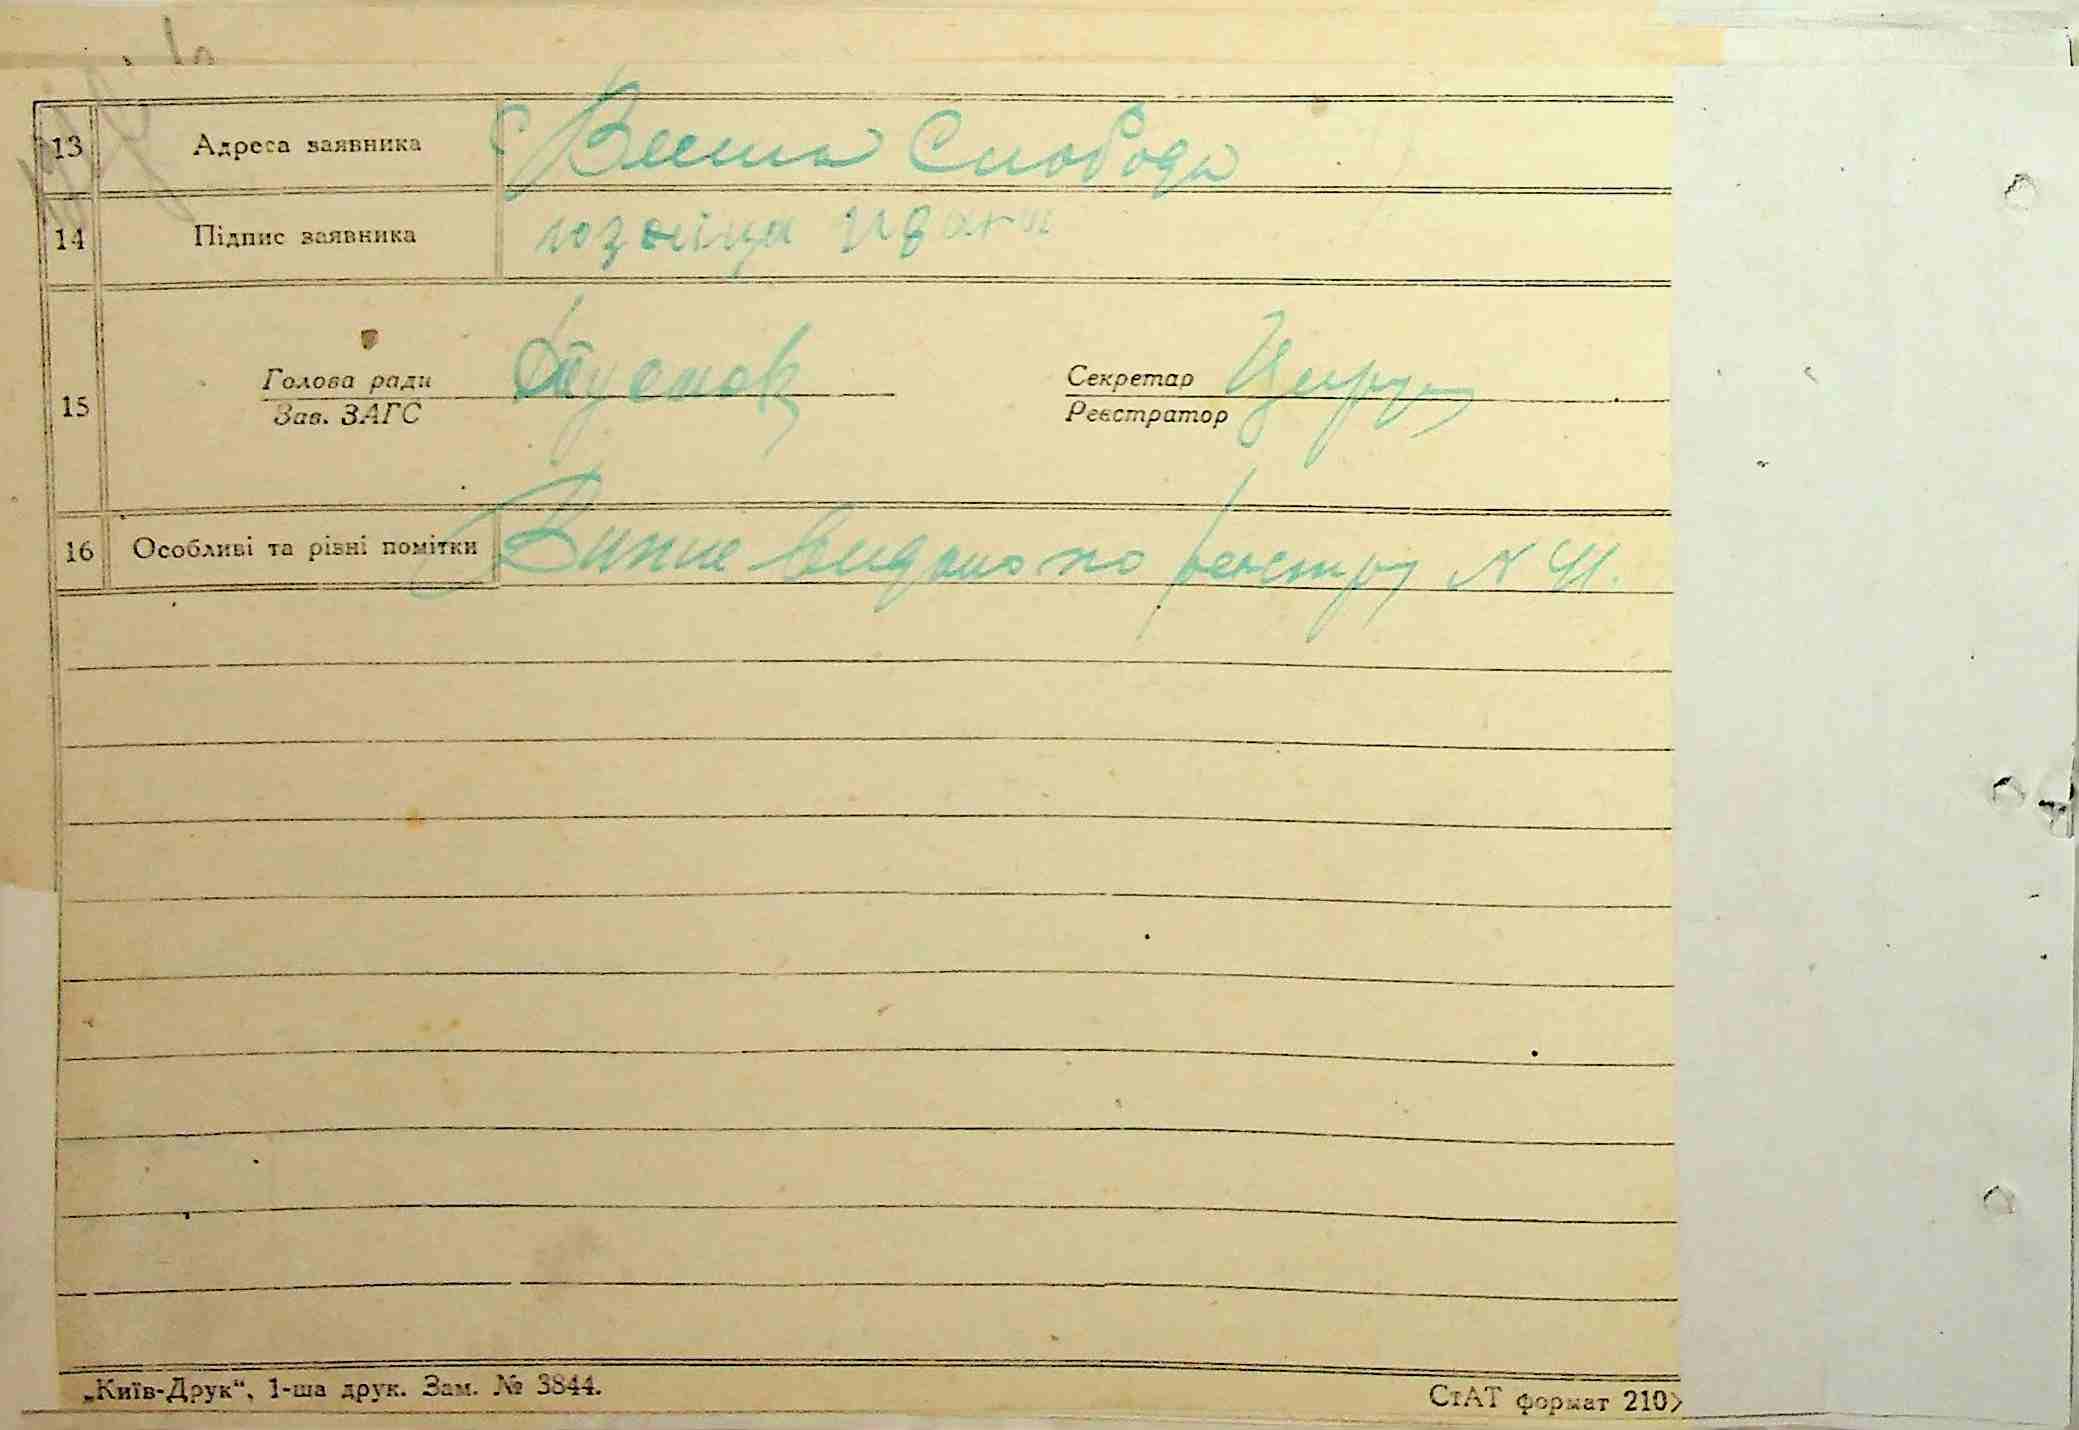 13 Адреса заявника с Велика Слобода
14 Підпис заявника
15 Голова ради Секретар
Зав. ЗАГС Реєстратор
16 Особливі та різні помітки видано по реєстру N 41.
„Київ-Друк“, 1-ша друк. Зам. № 3844.
СтАТ формат 210